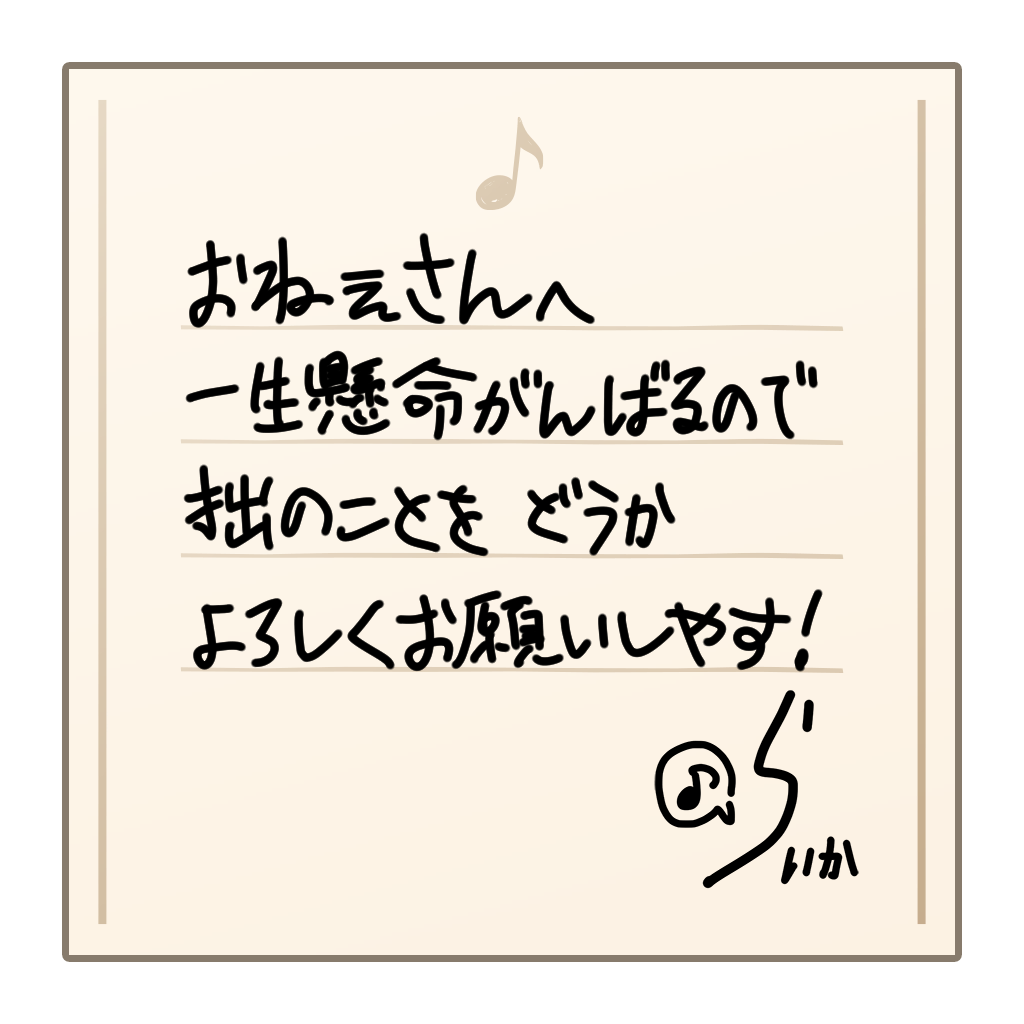 おねえさんへ
一生懸命がんばるので
拙のことを どうか
よろしくお願いしやす!
らいか